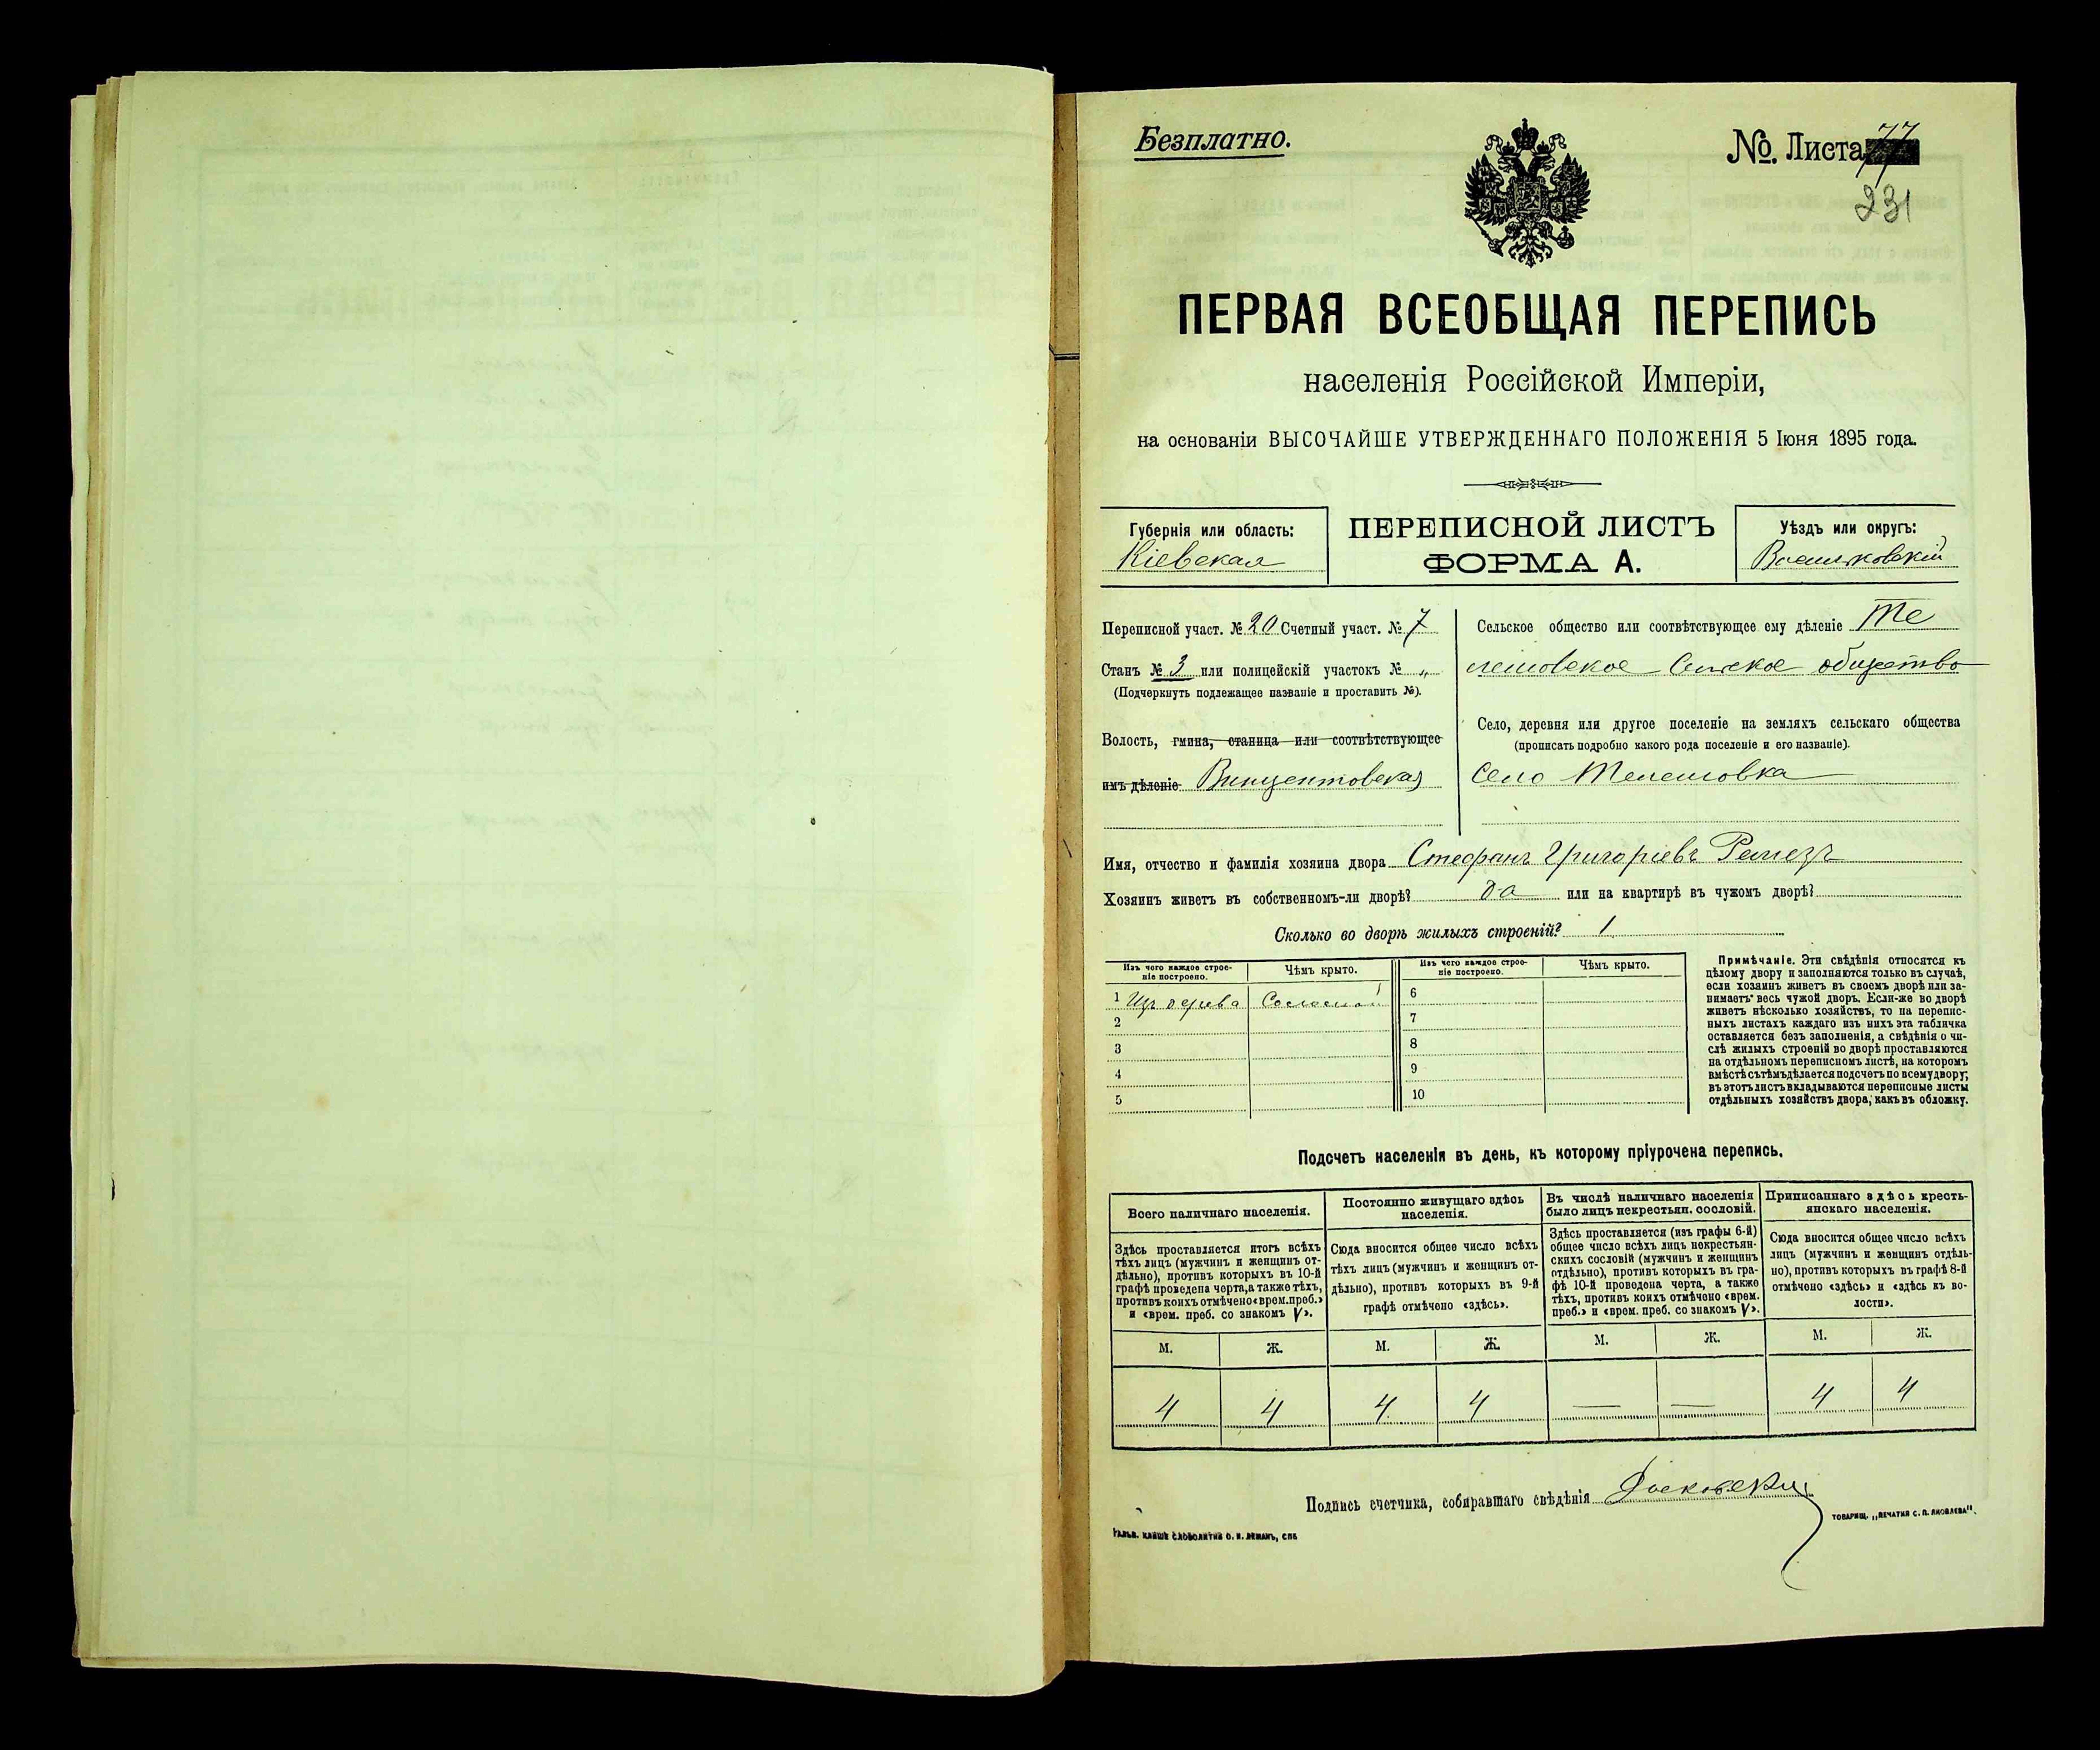 Безплатно.
№. Листа 77
231
ПЕРВАЯ ВСЕОБЩАЯ ПЕРЕПИСЬ
населенія Россійской Имперіи,
на основаніи ВЫСОЧАЙШЕ УТВЕРЖДЕННАГО ПОЛОЖЕНІЯ 5 Іюня 1895 года.
Губернія или область:
Кіевская
ПЕРЕПИСНОЙ ЛИСТЪ
ФОРМА А.
Уѣздъ или округъ:
Васильковскій
Переписной участ. № 20 Счетный участ. № 7
Станъ № 3 или полицейскій участокъ № „
(Подчеркнуть подлежащее названіе и проставить №).
Волость, гмина, станица или соотвѣтствующее
имъ дѣленіе Винцентовская
Сельское общество или соотвѣтствующее ему дѣленіе Те
лешовское Сельское общество
Село, деревня или другое поселеніе на земляхъ сельскаго общества
(прописать подробно какого рода поселеніе и его названіе).
село Телешовка
Имя, отчество и фамилія хозяина двора Стефанъ Григоріевъ Ремезъ
Хозяинъ живетъ въ собственномъ-ли дворѣ? да или на квартирѣ въ чужомъ дворѣ?
Сколько во дворѣ жилыхъ строеній? 1
Изъ чего каждое строе-
ніе построено.
Чѣмъ крыто.
Изъ чего каждое строе-
ніе построено.
Чѣмъ крыто.
1 Изъ дерева Соломой
2
3
4
5
6
7
8
9
10
Примѣчаніе. Эти свѣдѣнія относятся къ
цѣлому двору и заполняются только въ случаѣ,
если хозяинъ живетъ въ своемъ дворѣ или за-
нимаетъ весь чужой дворъ. Если-же во дворѣ
живетъ нѣсколько хозяйствъ, то на перепис-
ныхъ листахъ каждаго изъ нихъ эта табличка
оставляется безъ заполненія, а свѣдѣнія о чи-
слѣ жилыхъ строеній во дворѣ проставляются
на отдѣльномъ переписномъ листѣ, на которомъ
вмѣстѣ съ тѣмъ дѣлается подсчетъ по всему двору;
въ этотъ листъ вкладываются переписные листы
отдѣльныхъ хозяйствъ двора, какъ въ обложку.
Подсчетъ населенія въ день, къ которому пріурочена перепись.
Всего наличнаго населенія.
Здѣсь проставляется итогъ всѣхъ
тѣхъ лицъ (мужчинъ и женщинъ от-
дѣльно), противъ которыхъ въ 10-й
графѣ проведена черта, а также тѣхъ,
противъ коихъ отмѣчено «врем. преб.»
и «врем. преб. со знакомъ V».
М. Ж.
4 4
Постоянно живущаго здѣсь
населенія.
Сюда вносится общее число всѣхъ
тѣхъ лицъ (мужчинъ и женщинъ от-
дѣльно), противъ которыхъ въ 9-й
графѣ отмѣчено «здѣсь».
М. Ж.
4 4
Въ числѣ наличнаго населенія
было лицъ некрестьян. сословій.
Здѣсь проставляется (изъ графы 6-й)
общее число всѣхъ лицъ некрестьян-
скихъ сословій (мужчинъ и женщинъ
отдѣльно), противъ которыхъ въ гра-
фѣ 10-й проведена черта, а также
тѣхъ, противъ коихъ отмѣчено «врем.
преб.» и «врем. преб. со знакомъ V».
М. Ж.
— —
Приписаннаго здѣсь кресть-
янскаго населенія.
Сюда вносится общее число всѣхъ
лицъ (мужчинъ и женщинъ отдѣль-
но), противъ которыхъ въ графѣ 8-й
отмѣчено «здѣсь» и «здѣсь къ во-
лости».
М. Ж.
4 4
Подпись счетчика, собиравшаго свѣдѣнія
ГАЛЬВ. КЛИШЕ СЛОВОЛИТНИ О. И. ЛЕМАНЪ, СПБ
ТОВАРИЩ. „ПЕЧАТНЯ С. П. ЯКОВЛЕВА".